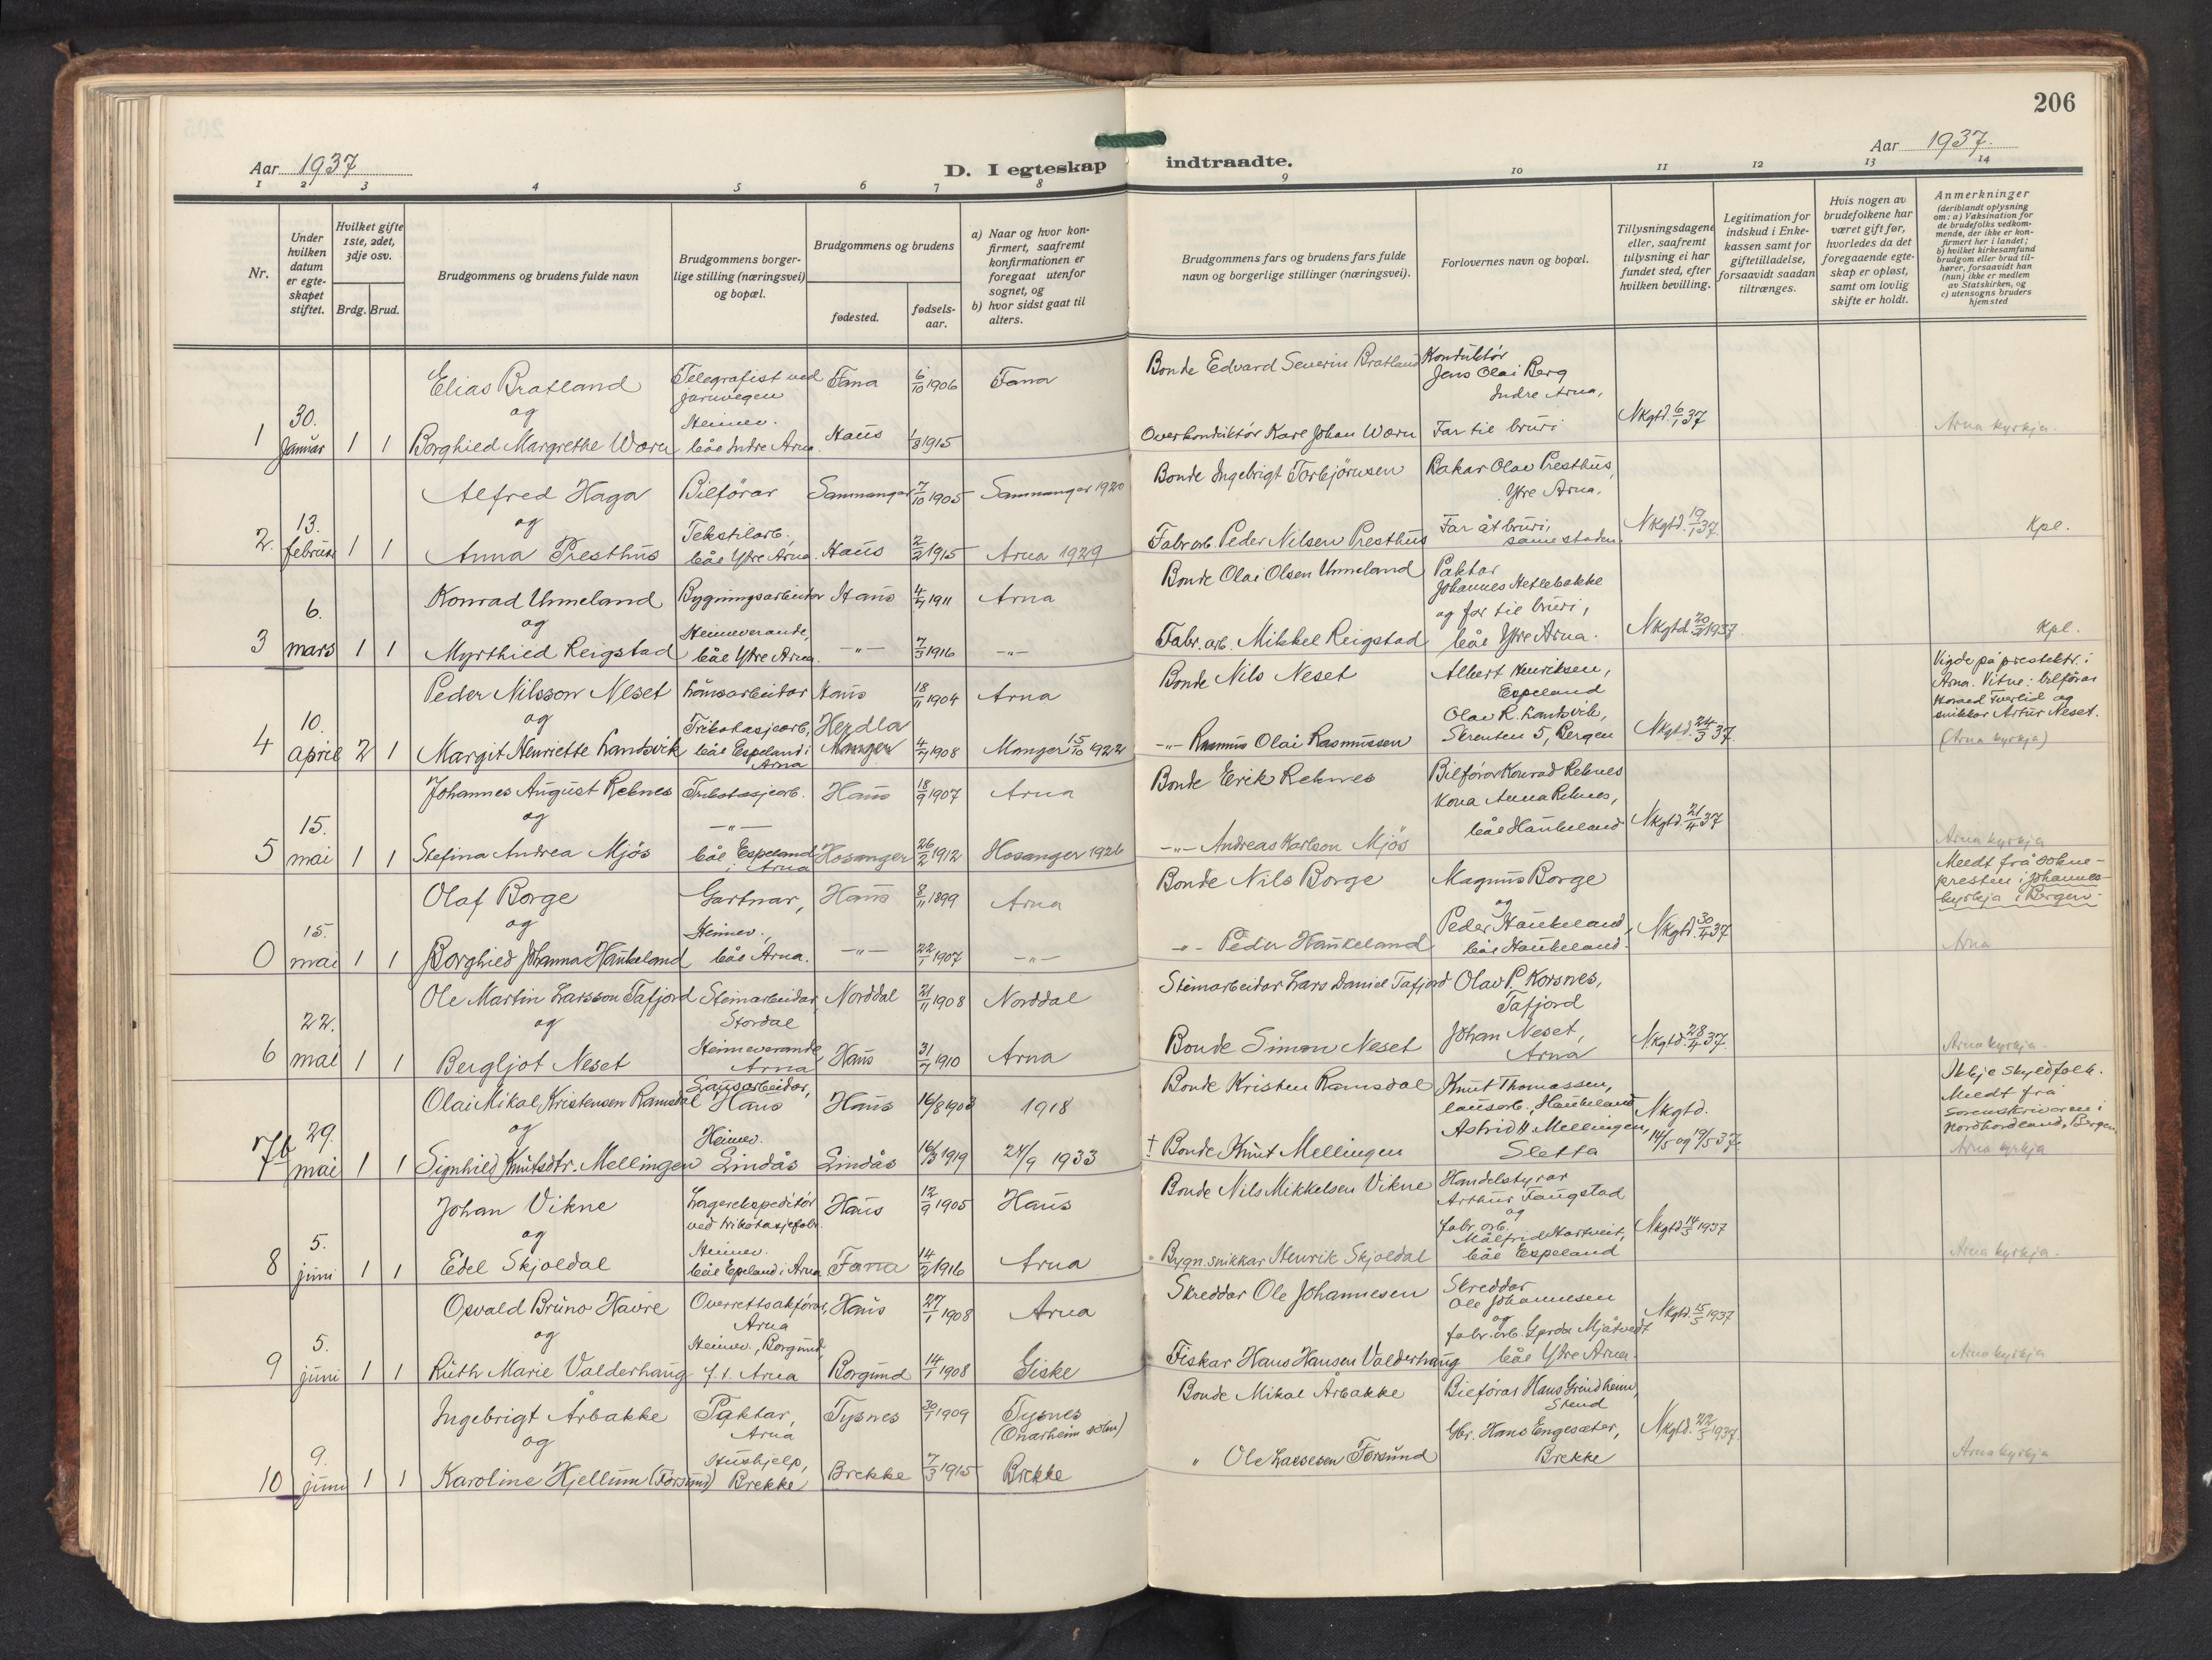 206
Aar 1937
D. I egteskap indtraadte.
Aar 1937.
1 2 3 4 5 6 7 8 9 10 11 12 13 14
Nr.
Under hvilken datum er egteskapet stiftet.
Hvilket gifte 1ste, 2det, 3dje osv.
Brdg. Brud.
Brudgommens og brudens fulde navn
Brudgommens borgerlige stilling (næringsvei) og bopæl.
Brudgommens og brudens
fødested.
fødselsaar.
a) Naar og hvor konfirmert, saafremt konfirmationen er foregaat utenfor sognet, og
b) hvor sidst gaat til alters.
Brudgommens fars og brudens fars fulde navn og borgerlige stillinger (næringsvei).
Forlovernes navn og bopæl.
Tillysningsdagene eller, saafremt tillysning ei har fundet sted, efter hvilken bevilling.
Legitimation for indskud i Enkekassen samt for giftetilladelse, forsaavidt saadan tiltrænges.
Hvis nogen av brudefolkene har været gift før, hvorledes da det foregaaende egteskap er opløst, samt om lovlig skifte er holdt.
Anmerkninger
(deriblandt oplysning om: a) Vaksination for de brudefolks vedkommende, der ikke er konfirmert her i landet; b) hvilket kirkesamfund brudgom eller brud tilhører, forsaavidt han (hun) ikke er medlem av Statskirken, og c) utensogns bruders hjemsted
Elias Bratland Telegrafist ved jarnvegen Fana 6/10 1906 Fana Bonde Edvard Severin Bratland Konduktør Jens Olai Berg Indre Arna,
og
1 30. Januar 1 1 Borghild Margrethe Wærn Heimev. båe Indre Arna. Haus 1/8 1915 Overkonduktør Karl Johan Wærn Far til bruri Nkgtd. 6/1 37 Arna kyrkja.
Alfred Haga Bilförar Samnanger 7/10 1905 Samnanger 1920 Bonde Ingebrigt Torbjörnsen Bakar Olav Presthus, Ytre Arna,
og
2. 13. februar 1 1 Anna Presthus Tekstilarb. båe Ytre Arna. Haus 2/2 1915 Arna 1929 Fabr. arb. Peder Nilsen Presthus Far åt bruri, same staden. Nkgtd. 19/1 37. Kpl.
Konrad Unneland Bygningsarbeidar Haus 4/7 1911 Arna Bonde Olai Olsen Unneland Paktar Johannes Hetlebakke
og
3 6. mars 1 1 Myrthild Reigstad Heimeverande, båe Ytre Arna. -"- 7/3 1916 -"- Fabr. arb. Mikkel Reigstad og far til bruri, båe Ytre Arna. Nkgtd. 1937. Kpl.
Peder Nilsson Neset Lausarbeidar Haus 18/11 1904 Arna Bonde Nils Neset Albert Henriksen, Espeland
og
4 10. april 2 1 Margit Henriette Landsvik Trikotasjearb, båe Espeland i Arna Herdla Manger 4/7 1908 Manger 15/10 1922 -"- Rasmus Olai Rasmussen Olav R. Landsvik, Skrenten 5, Bergen Nkgtd. 24/3 37. Vigde på prestektr. i Arna. Vitne: bilförar Konrad Tverlid og snikkar Artur Neset. (Arna kyrkja)
Johannes August Reknes Trikotasjearb. Haus 18/9 1907 Arna Bonde Erik Reknes Bilförar Konrad Reknes
og
5 15. mai 1 1 Stefina Andrea Mjös -"- båe Espeland i Arna Hosanger 26/2 1912 Hosanger 1926 -"- Andreas Karlson Mjös Kona Anna Reknes, båe Haukeland Nkgtd. 21/4 37 Arna kyrkja
Olaf Borge Gartnar, Haus 8/11 1899 Arna Bonde Nils Borge Magnus Borge
og
0 15. mai 1 1 Borghild Johanna Haukeland Heimev., båe Arna. -"- 22/1 1907 -"- -"- Peder Haukeland og Peder Haukeland, båe Haukeland. Nkgtd. 30/4 37 Meldt frå sokne-presten i Johannes-kyrkja i Bergen. Arna
Ole Martin Larsson Tafjord Steinarbeidar, Stordal Norddal 21/11 1908 Norddal Steinarbeidar Lars Daniel Tafjord Olav P. Korsnes, Tafjord
og
6 22. mai 1 1 Bergljot Neset Heimeverande, Arna Haus 31/7 1910 Arna Bonde Simon Neset Johan Neset, Arna Nkgtd. 28/4 37. Arna kyrkja.
Olai Mikal Kristensen Ramsdal Lausarbeidar, Haus Haus 16/8 1903 1918 Bonde Kristen Ramsdal Knut Thomassen, lausarb., Haukeland
og
7b 29. mai 1 1 Signhild Knutsdtr. Mellingen Heimev. Lindås Lindås 16/3 1919 24/9 1933 † Bonde Knut Mellingen Astrid H. Mellingen, Sletta Nkgtd. 14/5 og 19/5 37. Ikkje skyldfolk. Meldt frå sorenskrivaren i Nordhordland, Bergen. Arna kyrkja
Johan Vikne Lagerekspeditör ved trikotasjefabr. Haus 12/9 1905 Haus Bonde Nils Mikkelsen Vikne Handelstyrar Arthur Faugstad
og
8 5. juni 1 1 Edel Skjoldal Heimev. båe Espeland i Arna Fana 14/2 1916 Arna Bygn.snikkar Henrik Skjoldal og fabr. arb. Målfrid Hartveit, båe Espeland Nkgtd. 14/5 1937 Arna kyrkja.
Osvald Bruno Havre Overrettssakförar, Arna Haus 27/1 1908 Arna Skreddar Ole Johannesen Skreddar Ole Johannesen
og
9 5. juni 1 1 Ruth Marie Valderhaug Heimev., Borgund, f. t. Arna Borgund 14/1 1908 Giske Fiskar Hans Hansen Valderhaug og fabr. arb. Gerda Mjåtvedt båe Ytre Arna. Nkgtd. 15/5 1937 Arna kyrkja
Ingebrigt Årbakke Paktar, Arna Tysnes 30/1 1909 Tysnes (Onarheim sokn) Bonde Mikal Årbakke Bilförar Hans Grindheim, Stend
og
10 9. juni 1 1 Karoline Hjellum (Forsund) Hushjelp, Brekke Brekke 7/3 1915 Brekke " Ole Lassesen Forsund Gbr. Hans Engesæter, Brekke Nkgtd. 22/5 1937. Arna kyrkja